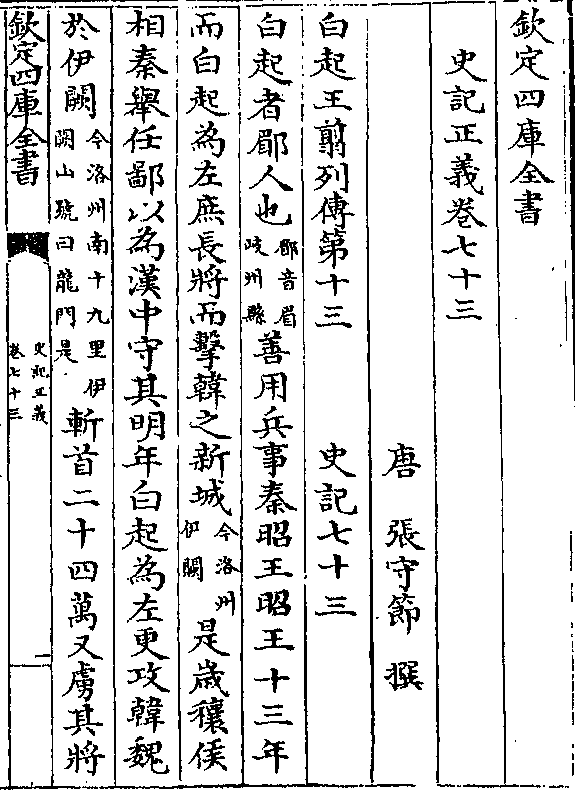 欽定四庫全書
史記正義卷七十三
唐 張守節 撰
白起王翦列傳第十三 史記七十三
白起者郿人也郿音眉岐州縣善用兵事秦昭王昭王十三年
而白起為左庶長將而擊韓之新城今洛州伊闕是歲穰侯
相秦舉任鄙以為漢中守其明年白起為左更攻韓魏
於伊闕今洛州南十九里伊闕山號曰龍門是斬首二十四萬又虜其將
欽定四庫全書
史記正義
卷七十三
一